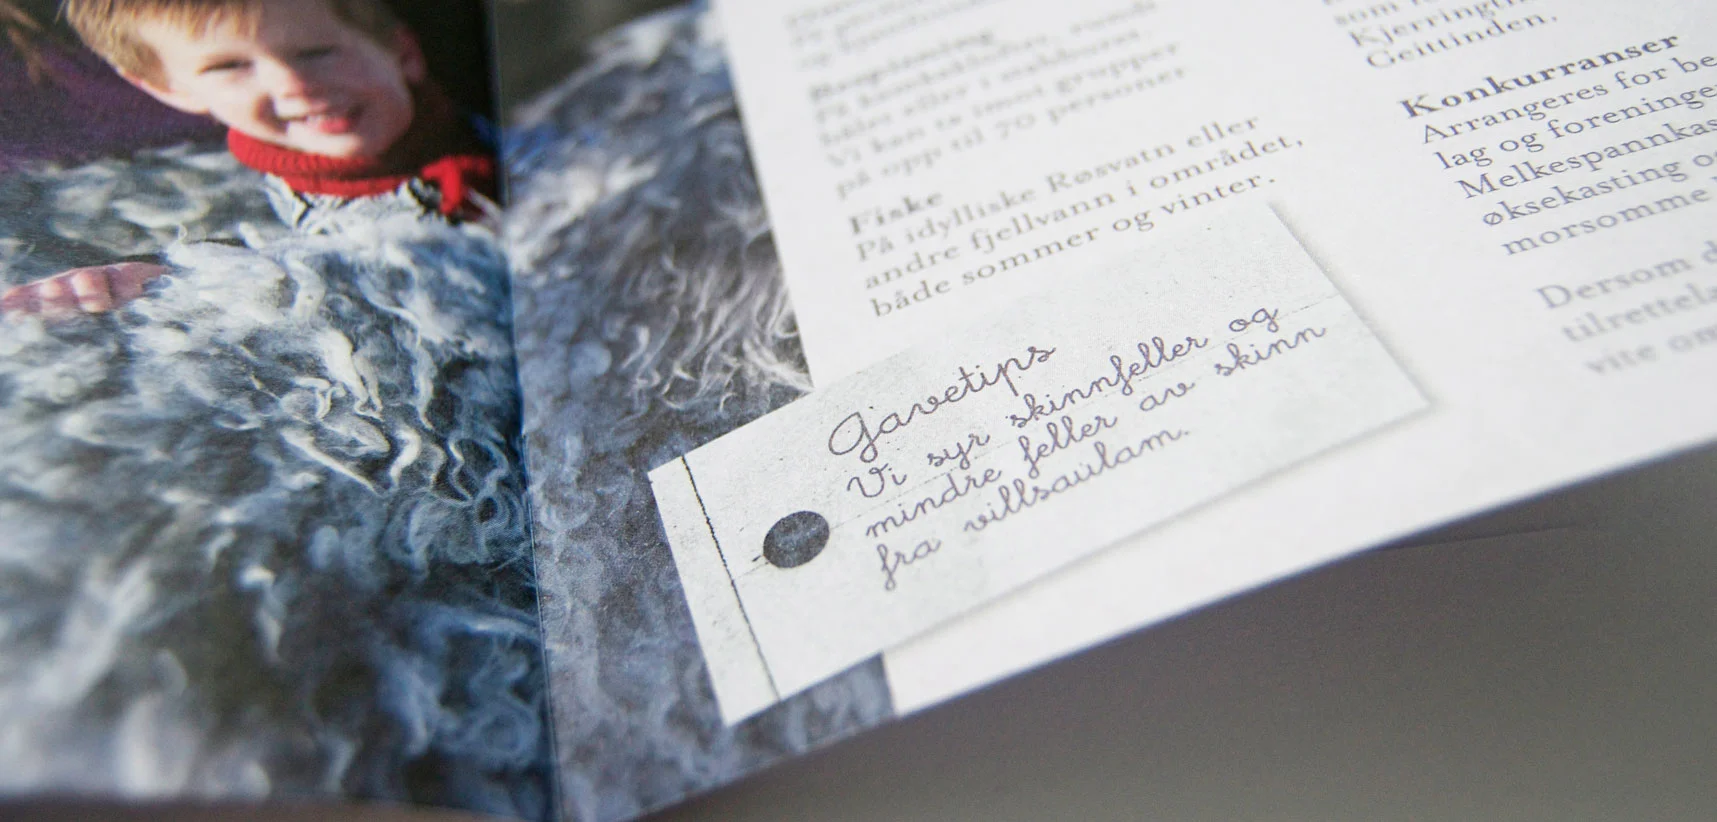 Bespisning
På
bålet eller i
Vi kan ta imot grupper
på opp til 70 personer
Fiske
På idylliske Røsvatn eller
andre fjellvann i området,
både sommer og vinter.
Gavetips
Vi syr skinnfeller og
mindre feller av skinn
fra villsaulam.
som
Geittinden.
Konkurranser
Arrangeres for be
lag og foreninge
Melkespannkas
øksekasting o
morsomme
Dersom d
tilrettela
vite om